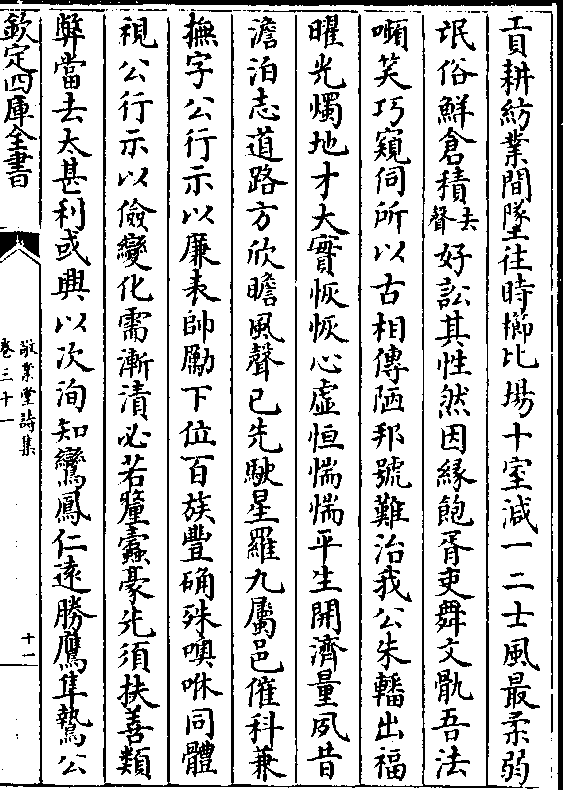 貢耕紡業間墜往時櫛比場十室減一二士風最柔弱
氓俗鮮倉積去聲好訟其性然因緣飽胥吏舞文骫吾法
嚬笑巧窺伺所以古相傳陋邦號難治我公朱轓出福
曜光燭地才大實恢恢心虛恒惴惴平生開濟量夙昔
澹泊志道路方欣瞻風聲已先駛星羅九屬邑催科兼
撫字公行示以廉表帥勵下位百族豐确殊噢咻同體
視公行示以儉變化需漸漬必若釐蠹豪先須扶善類
弊當去太甚利或興以次洵知鸞鳳仁遠勝鷹隼鷙公
欽定四庫全書
敬業堂詩集
卷三十一
十一